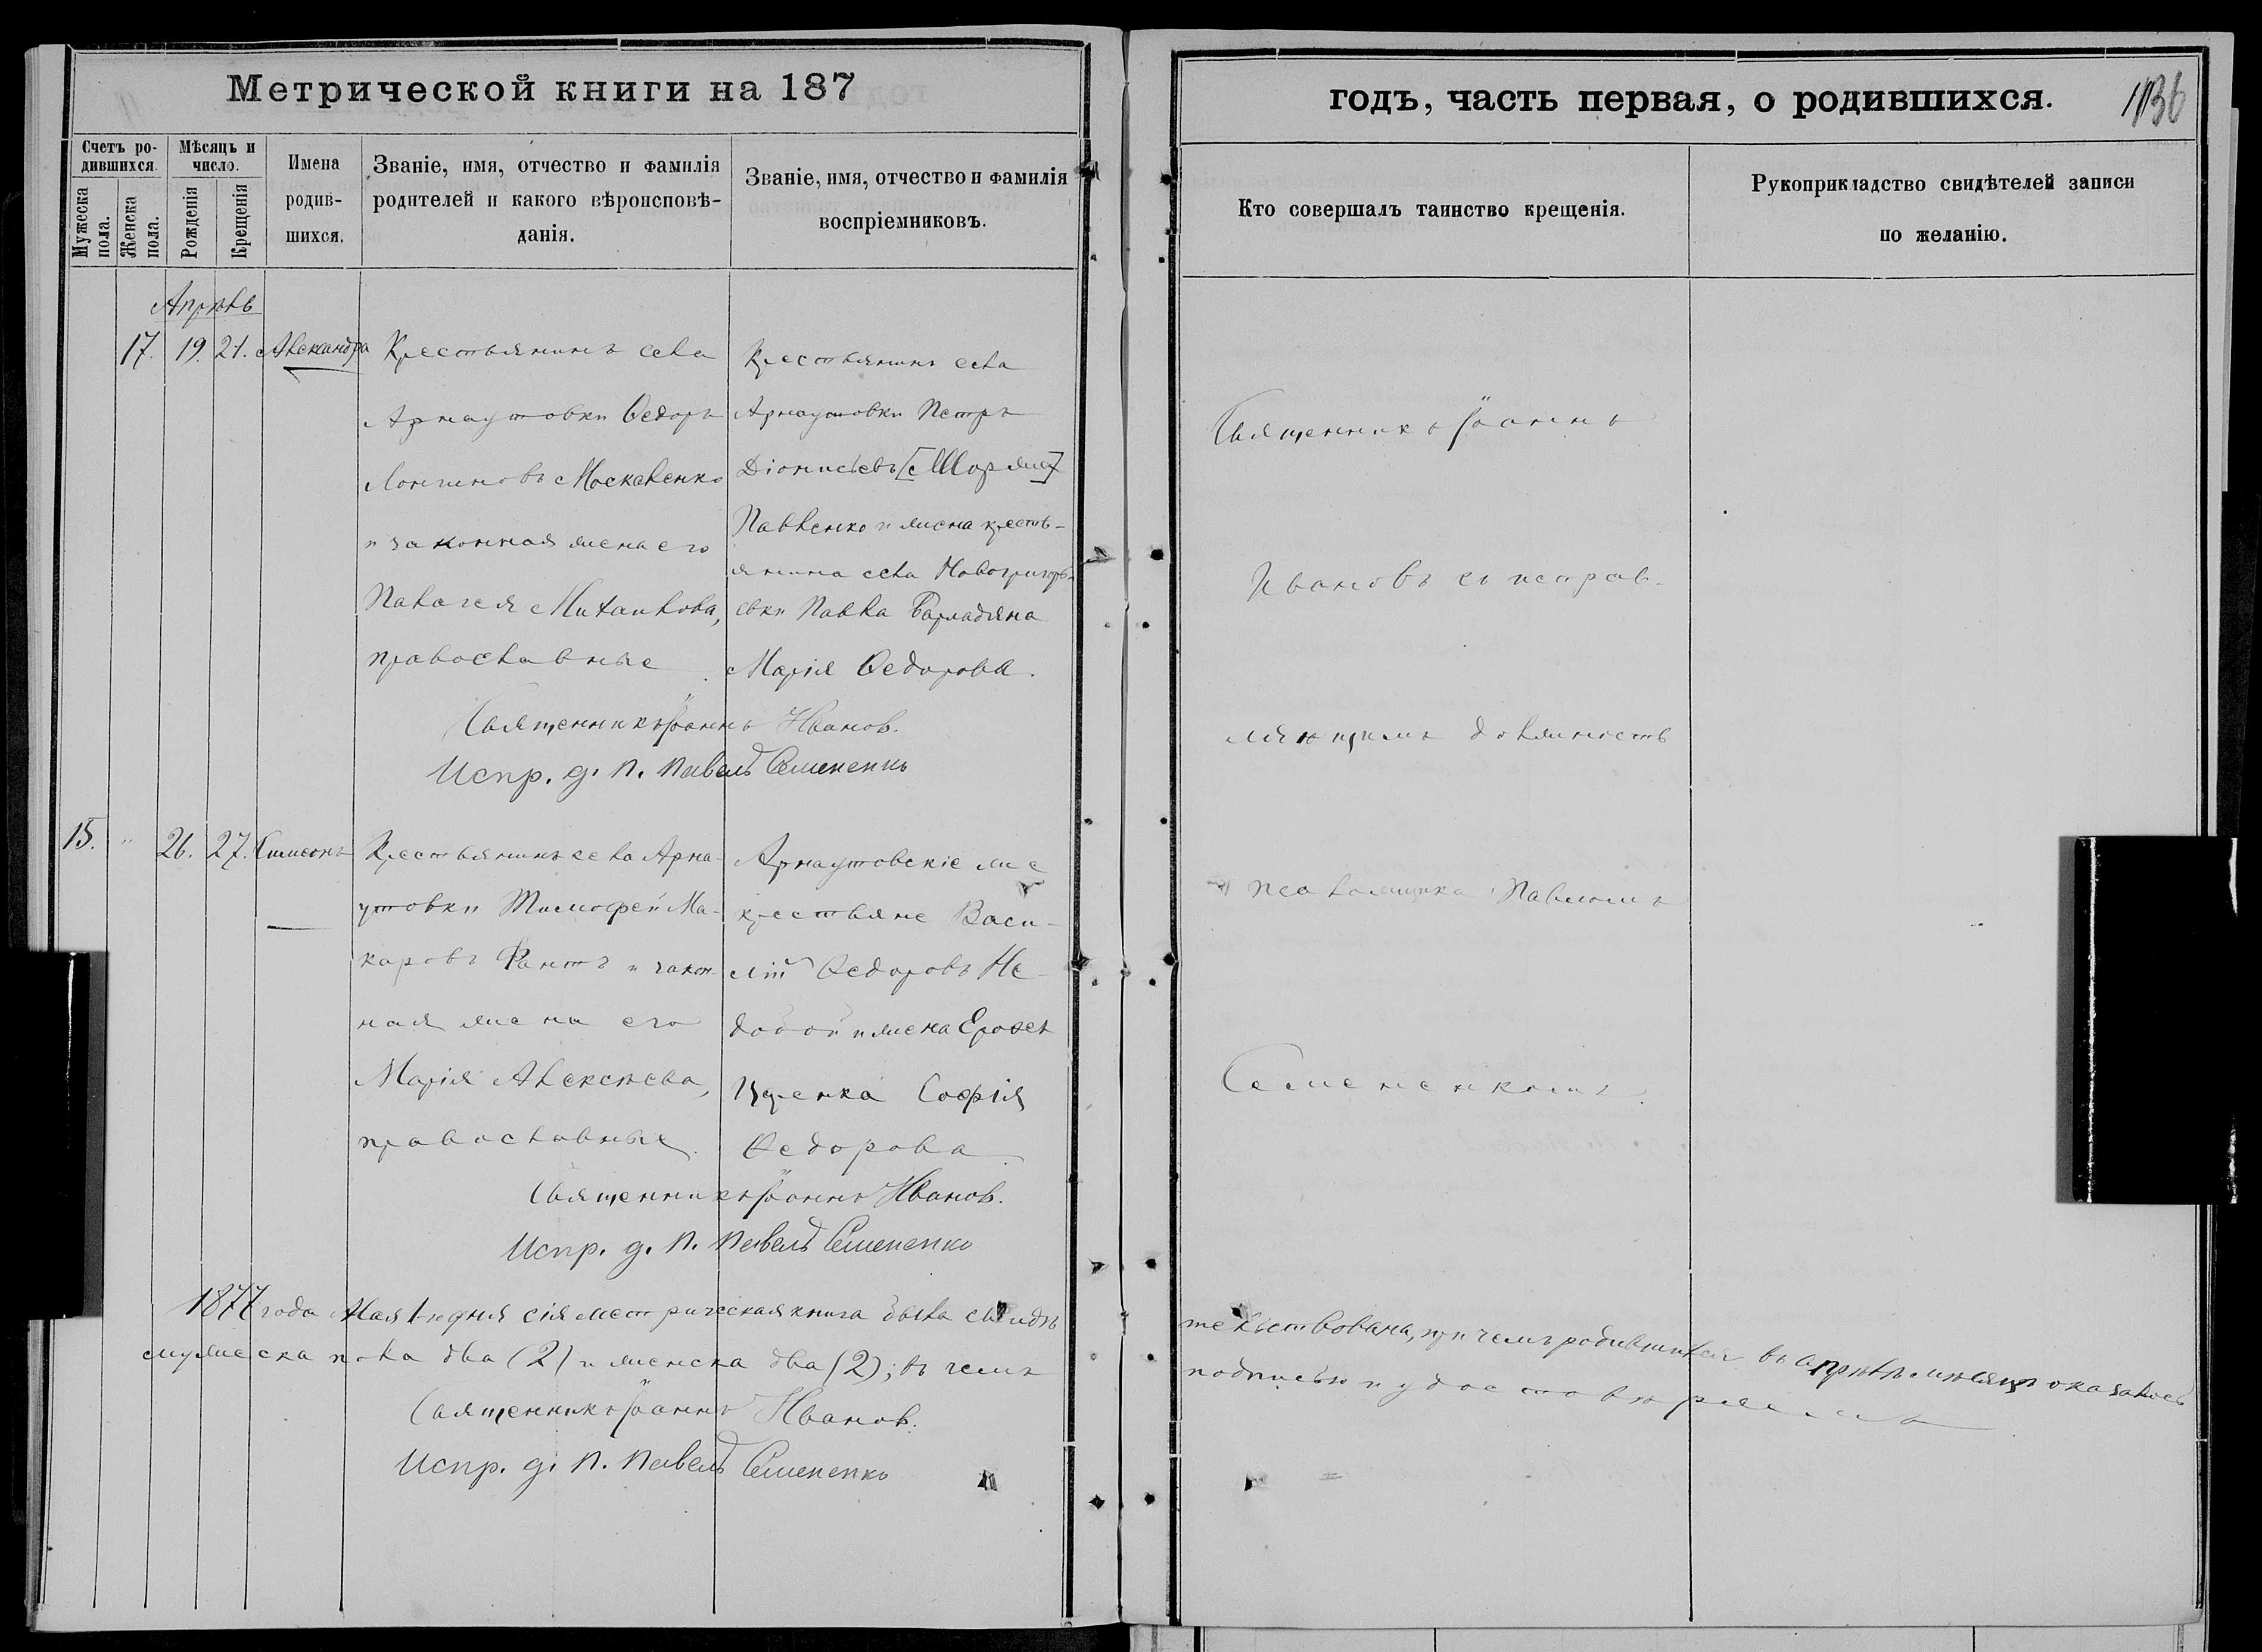 Метрической книги на 187
годъ, часть первая, о родившихся.
136
Счетъ ро-
дившихся.
Мѣсяцъ и
число.
Мужеска
пола.
Женска
пола.
Рожденія
Крещенія
Имена
родив-
шихся.
Званіе, имя, отчество и фамилія
родителей и какого вѣроисповѣ-
данія.
Званіе, имя, отчество и фамилія
воспріемниковъ.
Кто совершалъ таинство крещенія.
Рукоприкладство свидѣтелей записи
по желанію.
Апрѣль
17. 19. 21. Александра
Крестьянинъ села
Арнаутовки Ѳедоръ
Лонгиновъ Москаленко
и законная жена его
Палагея Михаилова,
православные
Крестьянинъ села
Арнаутовки Петръ
Діонисьевъ
Павленко и жена кресть-
янина села Новогригорь-
евки Павла
Марія Ѳедорова.
Священникъ Іоаннъ Иванов.
Испр. д. п. Павелъ Семененко
Священникъ Іоаннъ
Ивановъ съ исправ-
ляющимъ должность
псаломщика Павломъ
Семененкомъ.
15. " 26. 27. Симеонъ
Крестьянинъ села Арна-
утовки Тимофей Ма-
каровъ Фантъ и закон-
ная жена его
Марія Алексѣева,
православные.
Арнаутовскіе же
крестьяне Васи-
лій Ѳедоровъ Не-
и жена
София
Ѳедорова
Священникъ Іоаннъ Иванов.
Испр. д. п. Павелъ Семененко
1877 года Мая 1-го дня сія метрическая книга была свидѣ
тельствована, при чемъ родившихся въ апрѣлѣ мѣсяцѣ оказалось
мужеска пола два (2) и женска два (2); въ чемъ
подписью и удостовѣряемъ
Священникъ Іоаннъ Иванов.
Испр. д. п. Павелъ Семененко